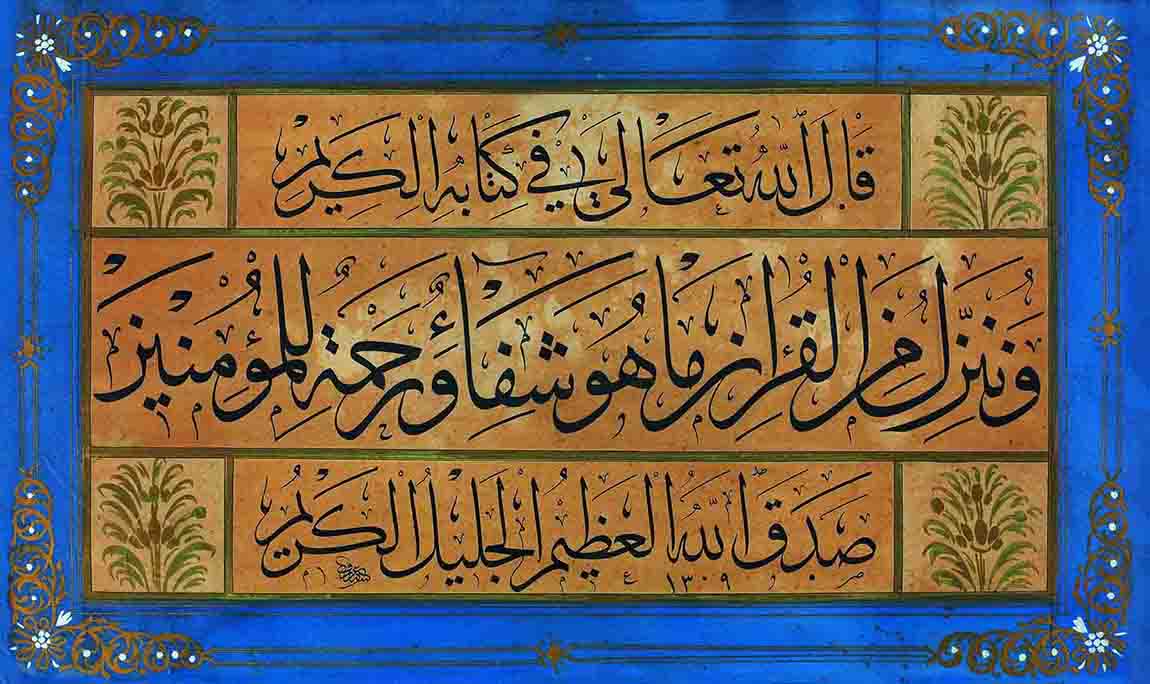 قَالَ اللّٰهُ تَعَالٰى فِي كِتَابِهِ الْكَرِيمِ
وَنُنَزِّلُ مِنَ الْقُرْاٰنِ مَا هُوَ شِفَاءٌ وَرَحْمَةٌ لِلْمُؤْمِنِينَ
صَدَقَ اللّٰهُ الْعَظِيمُ الْجَلِيلُ الْكَرِيمُ
١٣٠٩